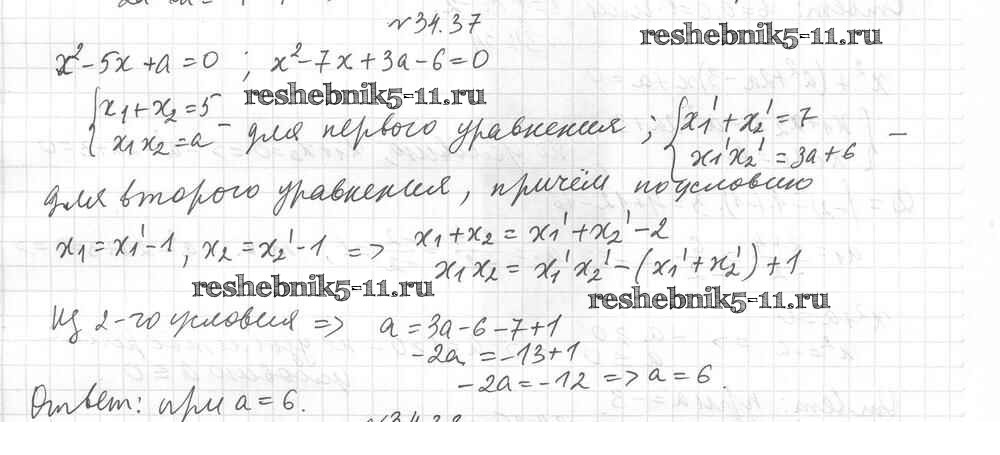 N34.37
reshebnik5-11.ru
x²-5x+a=0 ; x²-7x+3a-6=0
reshebnik5-11.ru
{x₁+x₂=5
x₁x₂=a - для первого уравнения ; {x₁'+x₂'=7
x₁'x₂'=3a+6 -
для второго уравнения, причём по условию
x₁=x₁'-1, x₂=x₂'-1 => x₁+x₂=x₁'+x₂'-2
x₁x₂=x₁'x₂'-(x₁'+x₂')+1
reshebnik5-11.ru
reshebnik5-11.ru
Из 2-го условия => a=3a-6-7+1
-2a=-13+1
-2a=-12 => a=6.
Ответ: при a=6.